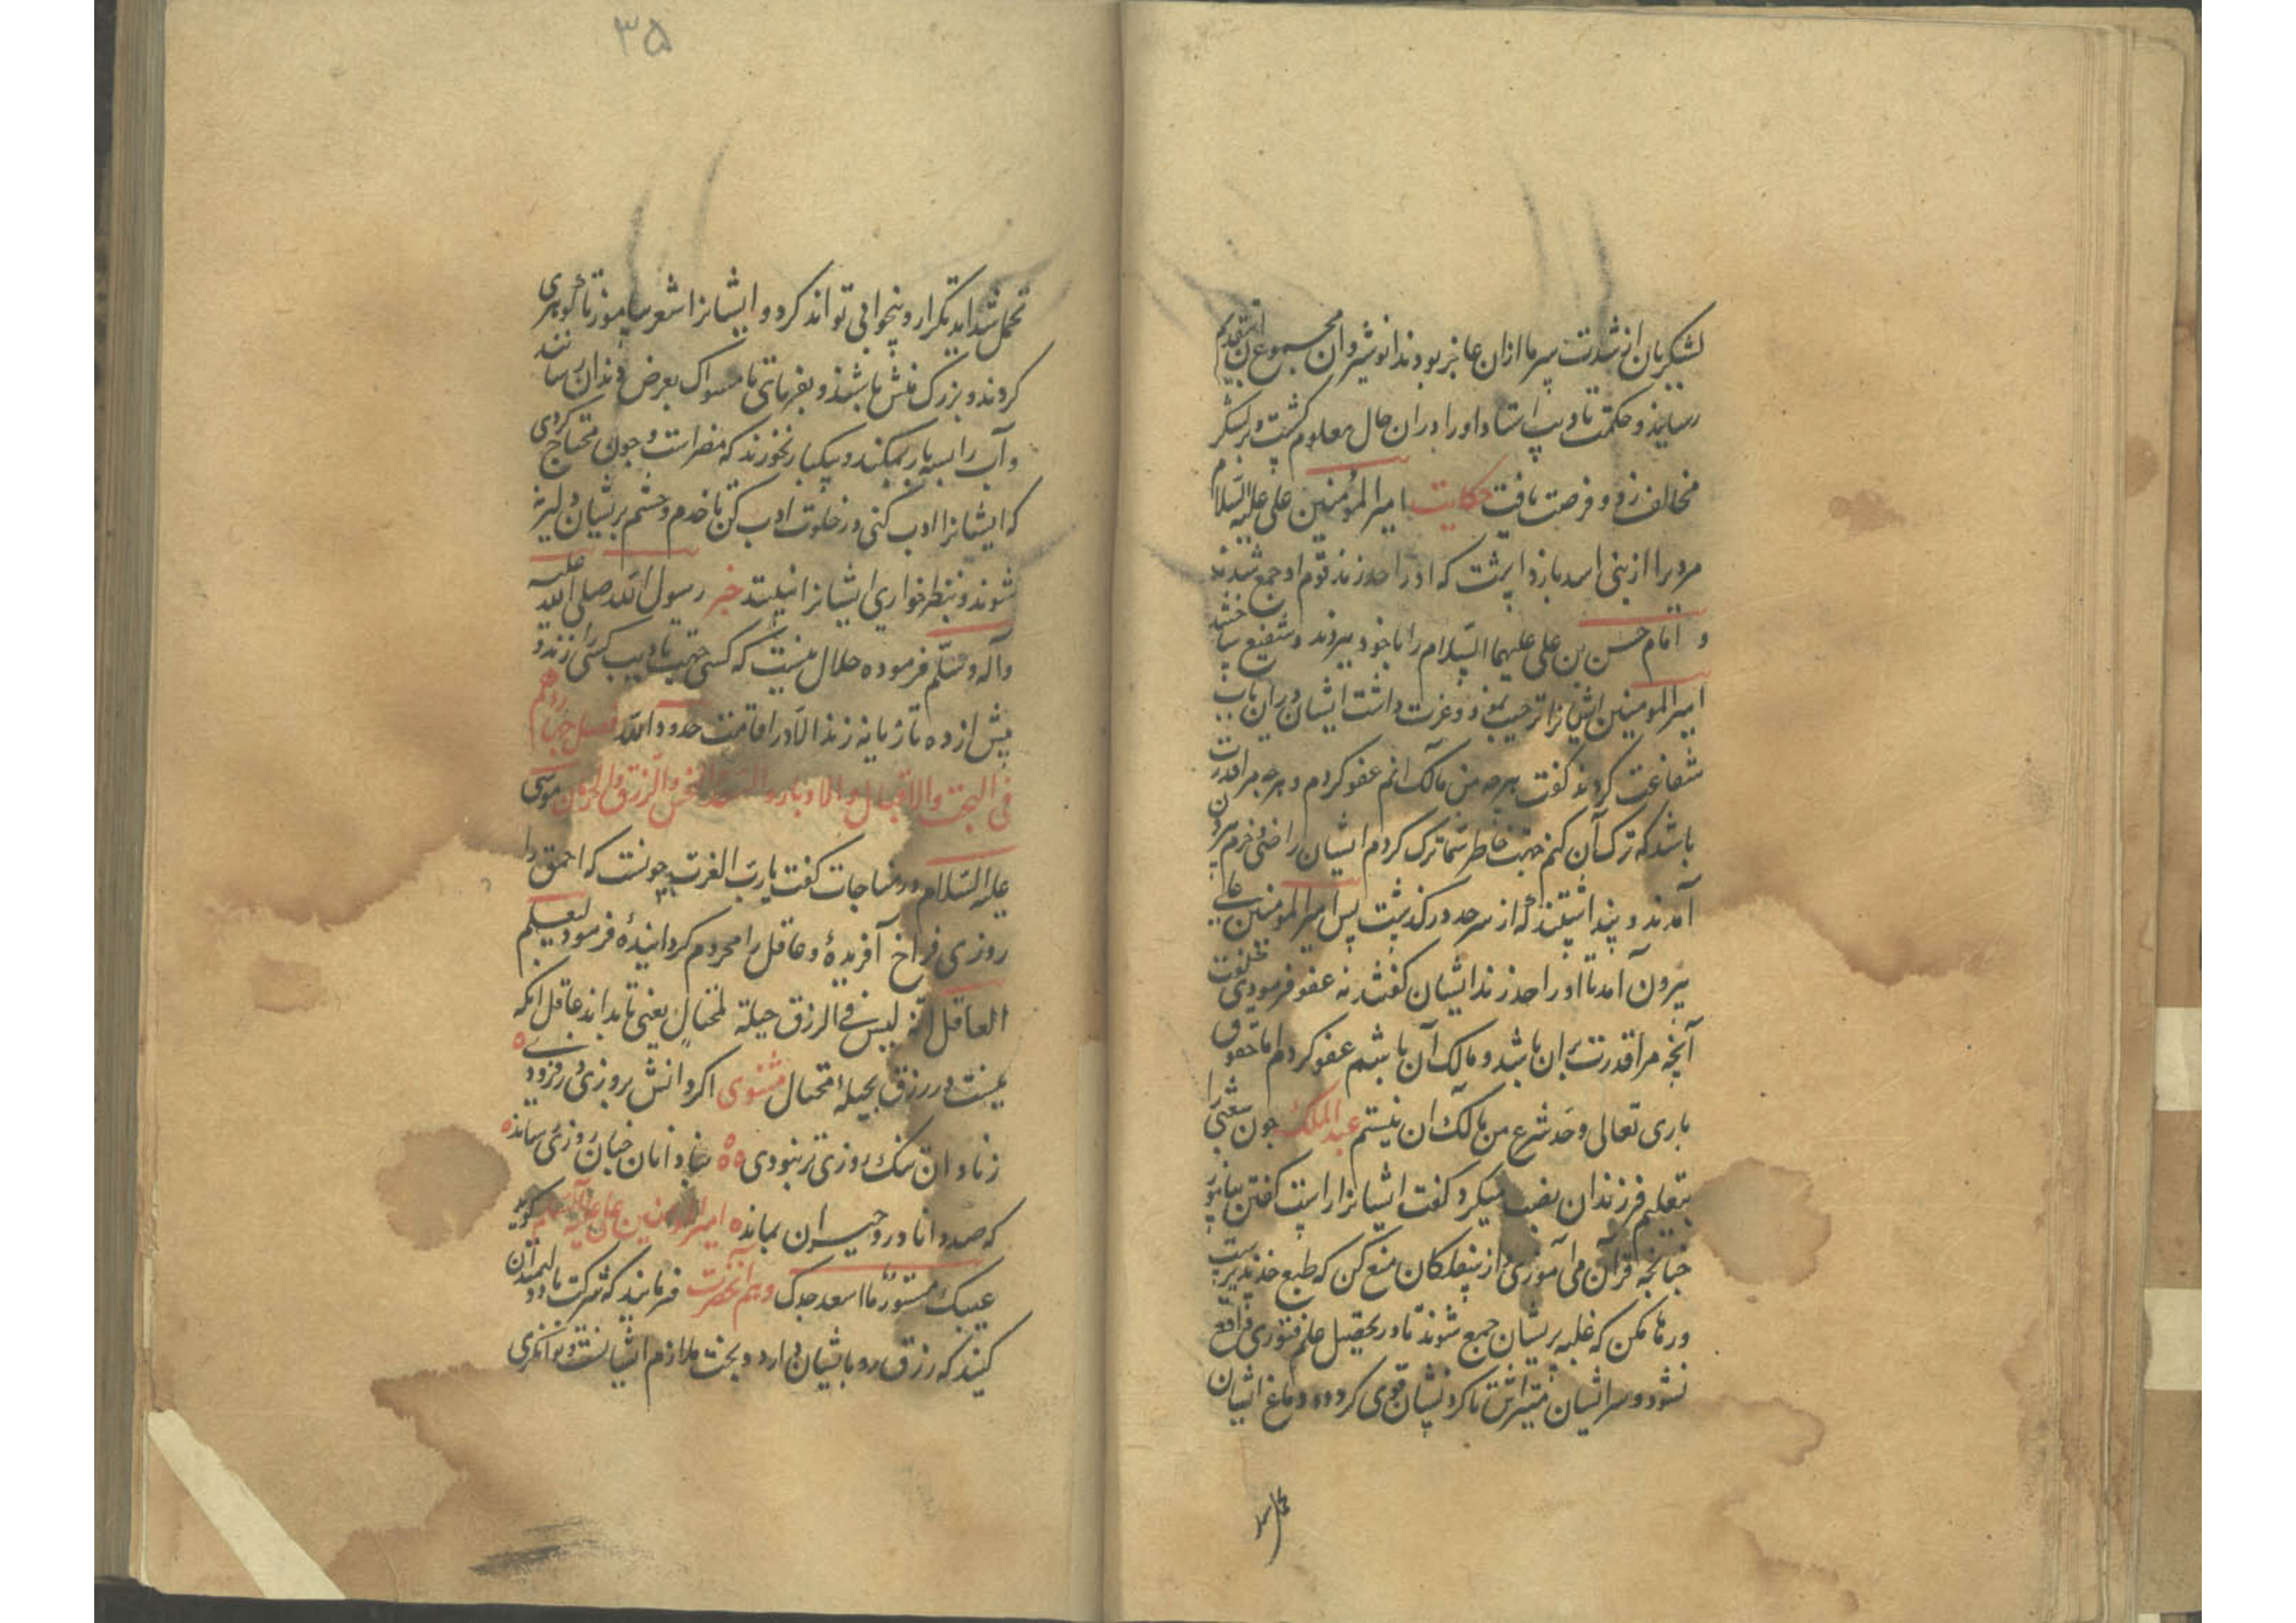 لشکریان از شدت سرما ازان عاجز بودند انوشیروان مجموع بتقدیم
رسانید و حکمت تادیب استاد او را دران حال معلوم گشت و بر لشکر
مخالف زد و فرصت یافت حکایت امیر المؤمنین علی علیه السلام
مردیرا از بنی اسد بازداشت که او را حد زند قوم او جمع شدند
و امام حسن بن علی علیهما السلام را با خود ببردند و شفیع ساختند
امیر المومنین ایشانرا ترحیب نمود و عزت داشت ایشان دران باب
شفاعت کردند گفت هرچه من مالک آنم عفو کردم و هرچه مرا قدرت
باشد که ترک آن کنم جهت خاطر شما ترک کردم ایشان راضی و خرم بیرون
آمدند و پنداشتند که از سر حد درگذشت پس امیر المومنین علی
بیرون آمد تا او را حد زند ایشان گفتند نه عفو فرمودی بخلوت
آنچه مرا قدرت بران باشد و مالک آن باشم عفو کردم اما حقوق
باری تعالی و حد شرع من مالک ان نیستم عبد الملک جون شعبی را
بتعلیم فرزندان نصب میکرد گفت ایشانرا راست گفتن بیاموز
جنانجه قرآن می آموزی و از سفلکان منع کن که طبع خذ پذیرست
و رها مکن که غلبه بریشان جمع شوند تا در تحصیل علم فتوری واقع
نشود و سر ایشان متراش تا کردنشان قوی کردد و دماغ ایشان
تحمل شداید تکرار و بیخوابی تواند کرد و ایشانرا شعر بیاموز تا کوهری
کردند و بزرک منش باشند و بفرمای تا مسواک بعرض دندان رسانند
و آب را بسه بار بمکند و بیکبار نخورند که مضر است و جون محتاج کردی
که ایشانرا ادب کنی در خلوت ادب کن تا خدم و حشم بریشان دلیر نه
شوند و بنظر خواری ایشانرا نبینند خبر رسول الله صلی الله علیه
وآله وسلم فرموده حلال نیست که کسی جهت تادیب کسی را زند و
بیش از ده تازیانه زند الا در اقامت حدود الله فصل جهاردهم
فی البخت والاقبال والادبار والسعد والنحس والرزق والحرمان موسی
علیه السلام در مناجات کفت یارب العزت جونست که احمق را
روزی فراخ آفریدهٔ و عاقل را محروم کردانیدهٔ فرمود لیعلم
العاقل انه لیس فی الرزق حیلة لمحتال یعنی تا بداند عاقل انکه
نیست در رزق بحیلهٔ محتال مثنوی اکر دانش بروزی در فزودی
ز نادان تنک روزی تر نبودی بنادانان جنان روزی رساند
که صد دانا درو حیران بماند امیر المؤمنین علی علیه السلام کوید
عیبک مستور ما اسعد جدک و هم آنحضرت فرمایند که شرکت با
کنید که رزق رو بایشان دارد و بخت ملازم ایشانست و توانکری
۳۵